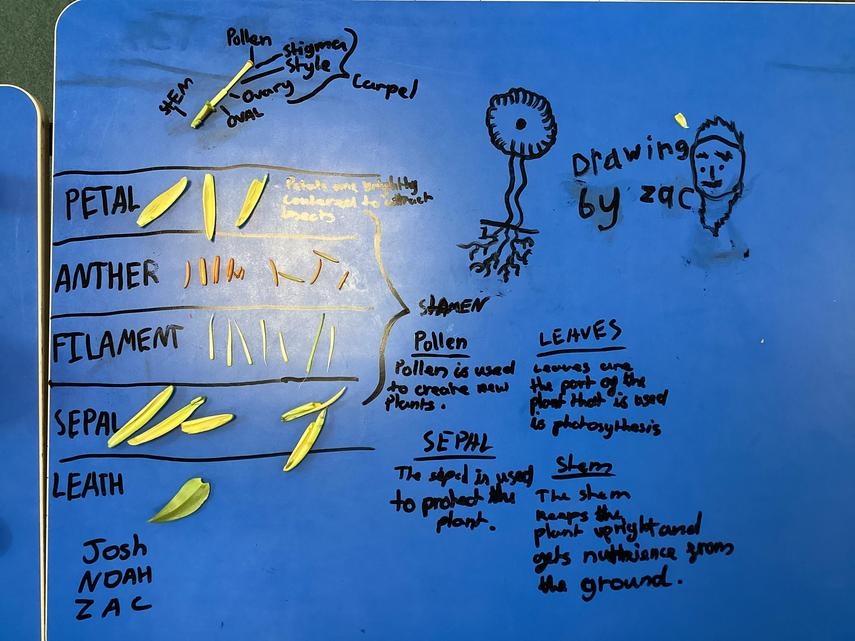 Pollen
Stigma
Style
Ovary
OVAL
Carpel
StEM
Drawing
by zac
PETAL
Petals are brightly
to attract
insects
ANTHER
FILAMENT
STAMEN
SEPAL
LEATH
Josh
NOAH
ZAC
Pollen
Pollen is used
to create new
Plants.
SEPAL
The sepal is used
to protect the
plant.
LEAVES
Leaves are
the part of the
plant that is used
is photosythesis
Stem
The stem
keeps the
plant upright and
gets nuttrience from
the ground.